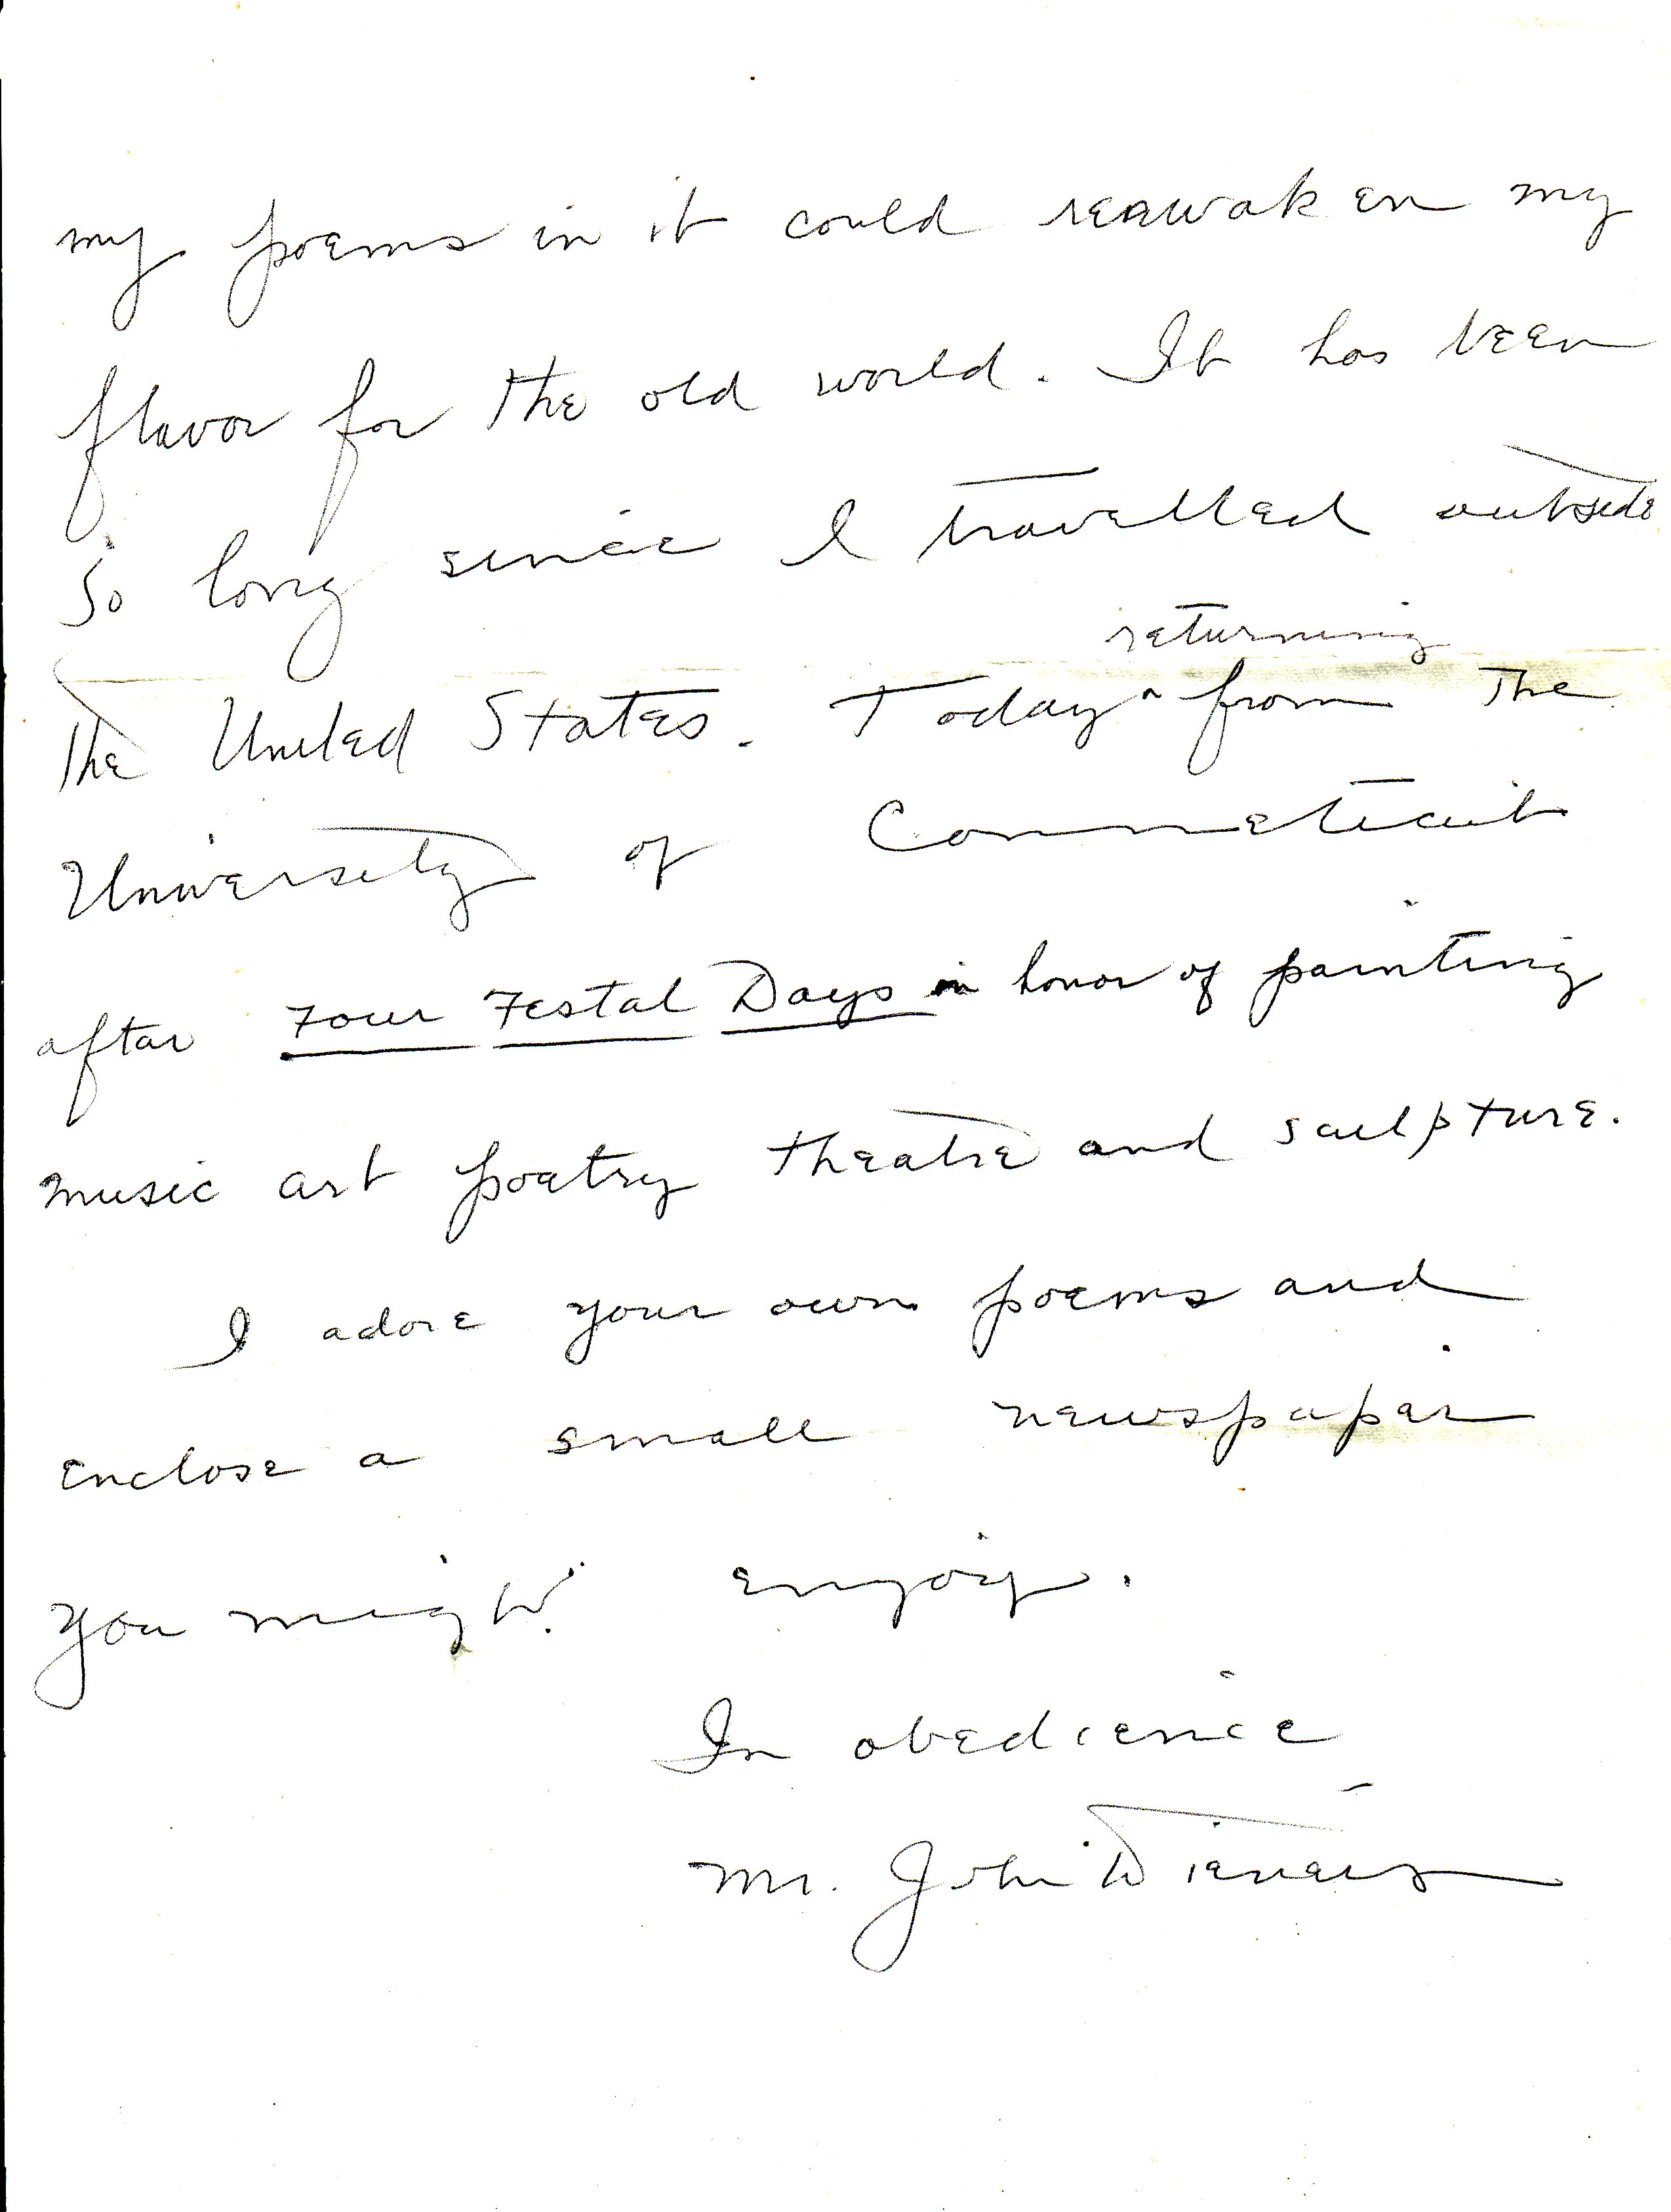 my poems in it could reawaken my
flavor for the old world. It has been
so long since I travelled outside
returning
the United States. Today ^ from the
University of Connecticut
after Four Festal Days in honor of painting
music art poetry theatre and sculpture.
I adore your own poems and
enclose a small newspaper
you might enjoy.
In obedience
Mr. John Wieners